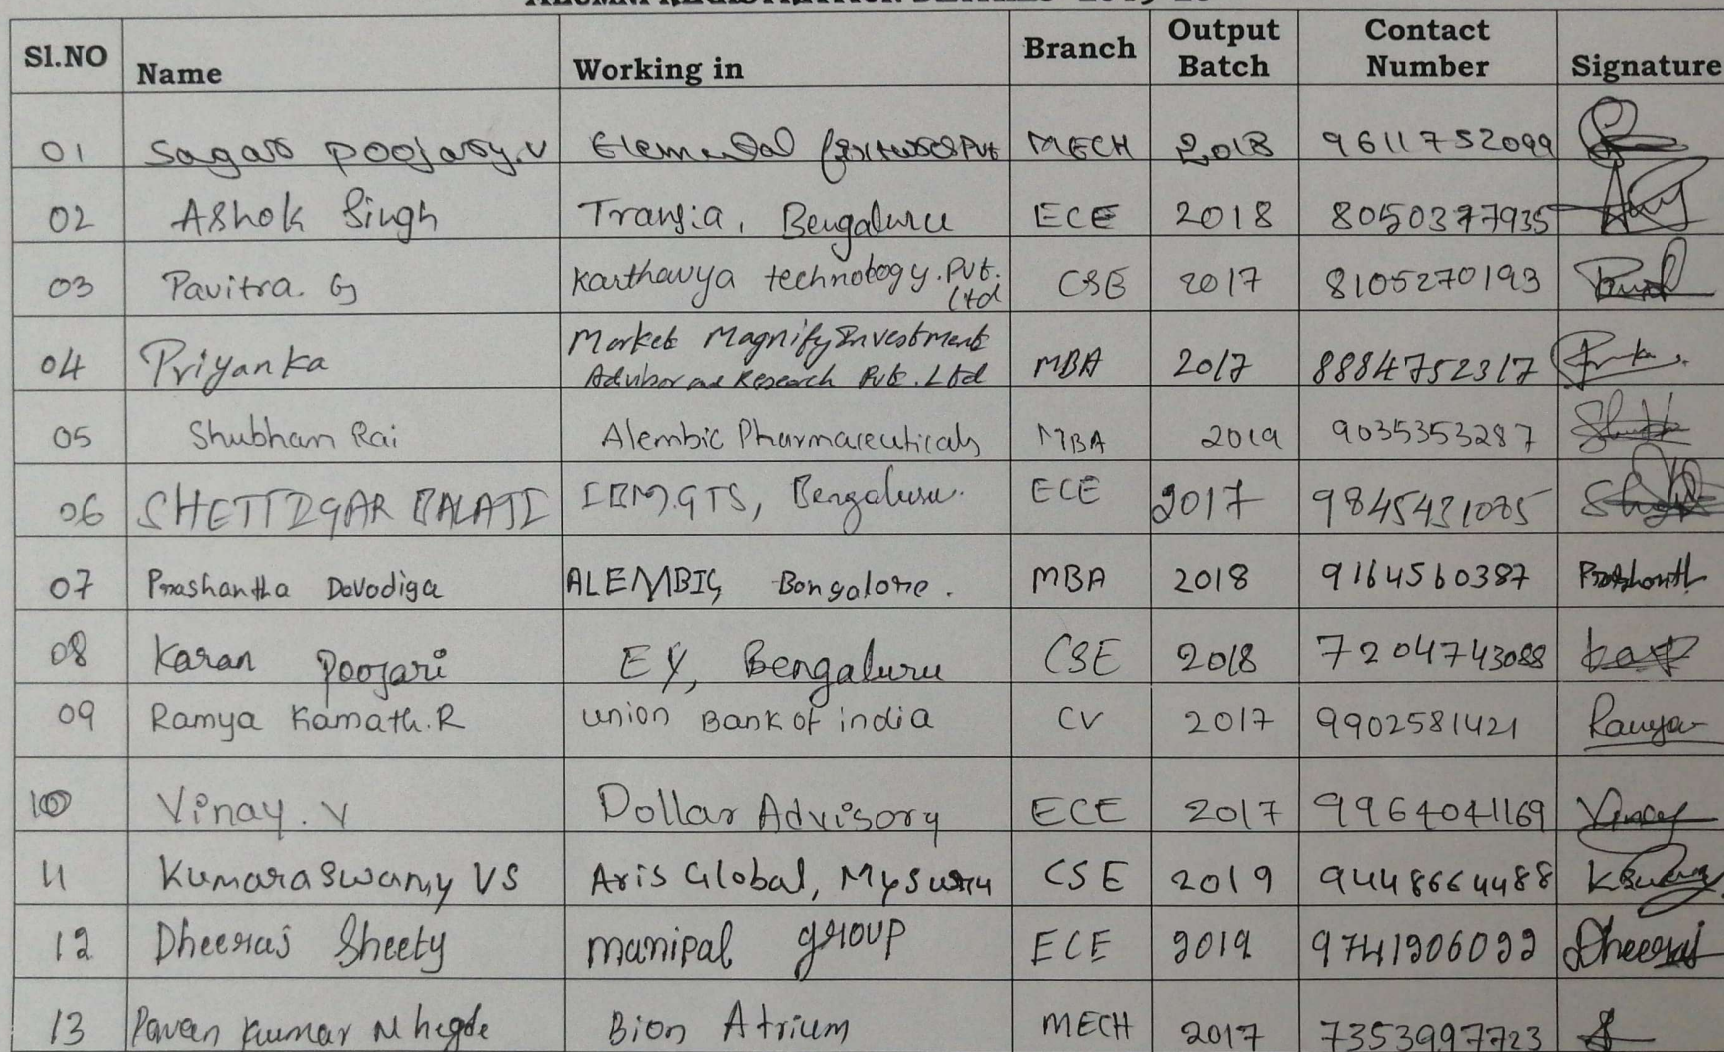 Sl.NO Name Working in Branch Output Batch Contact Number Signature
01 Sagar Poojary.V Elemental Pvt MECH 2018 9611752099
02 Ashok Singh Transia, Bengaluru ECE 2018 8050377935
03 Pavitra. G Karthavya technology.Pvt. Ltd CSE 2017 8105270193
04 Priyanka Market Magnify Investment Advisor and Research Pvt. Ltd MBA 2017 8884752317
05 Shubham Rai Alembic Pharmaceuticals MBA 2019 9035353287
06 SHETTIGAR BALAJI IBM GTS, Bengaluru. ECE 2017
07 Prashantha Devadiga ALEMBIC Bangalore. MBA 2018 9164560387 Prashanth
08 Karan Poojari EY, Bengaluru CSE 2018 7204743088
09 Ramya Kamath.R union Bank of india CV 2017 9902581421 Ramya
10 Vinay. V Dollar Advisory ECE 2017 9964041169 Vinay
11 Kumaraswamy VS Aris Global, Mysuru CSE 2019 9448664488
12 Dheeraj Sheety manipal group ECE 2019 Dheeraj
13 Pavan Kumar N hegde Bion Atrium MECH 2017 7353997723